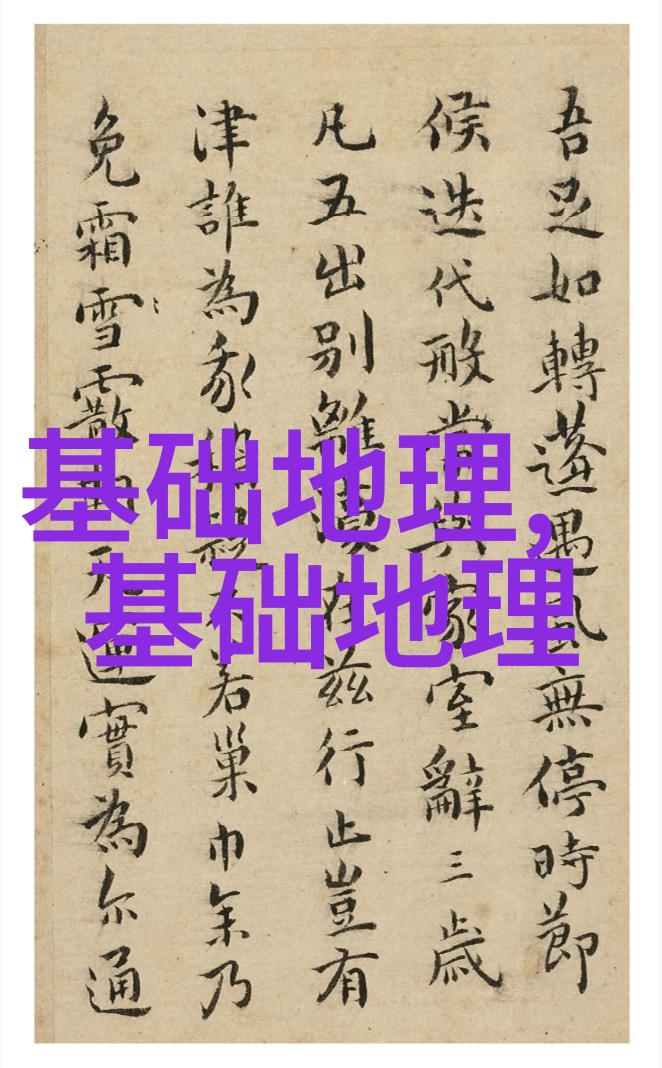 基础地理,
基础地理
吾足如轉蓬遇風無停時節
候迭代常與家室辭三歲
凡五出別離在兹行止豈有
津誰為不若巢巾乃
免霜雪霰實為尔通